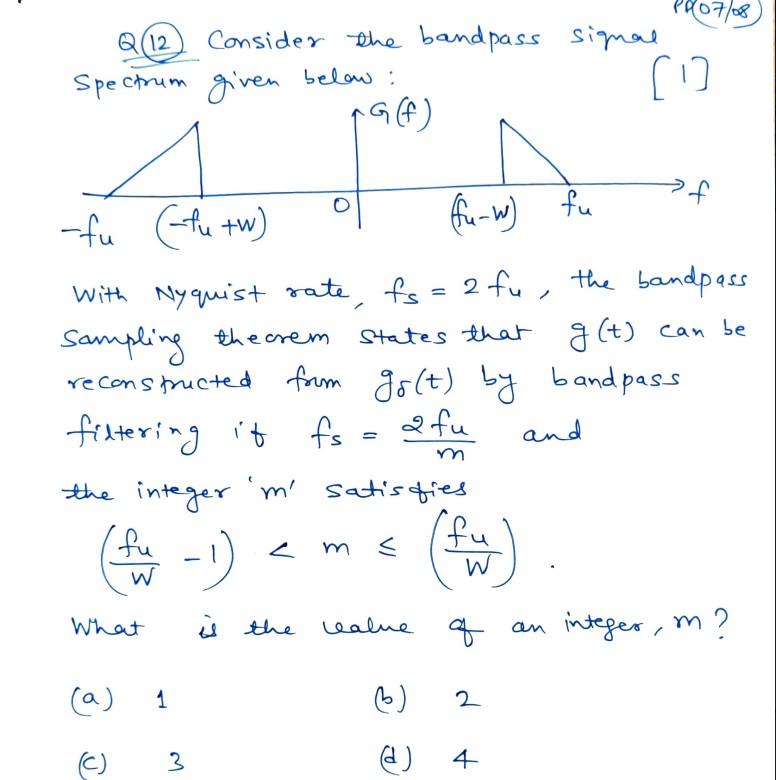 PP(07/08)
Q(12) Consider the bandpass signal
Spectrum given below : [1]
G(f)
-fu (-fu+w) 0 (fu-w) fu f
With Nyquist rate, fs = 2fu, the bandpass
Sampling theorem states that g(t) can be
reconstructed from gδ(t) by bandpass
filtering if fs = 2fu/m and
the integer 'm' satisfies
(fu/W - 1) < m ≤ (fu/W).
What is the value of an integer, m?
(a) 1 (b) 2
(c) 3 (d) 4